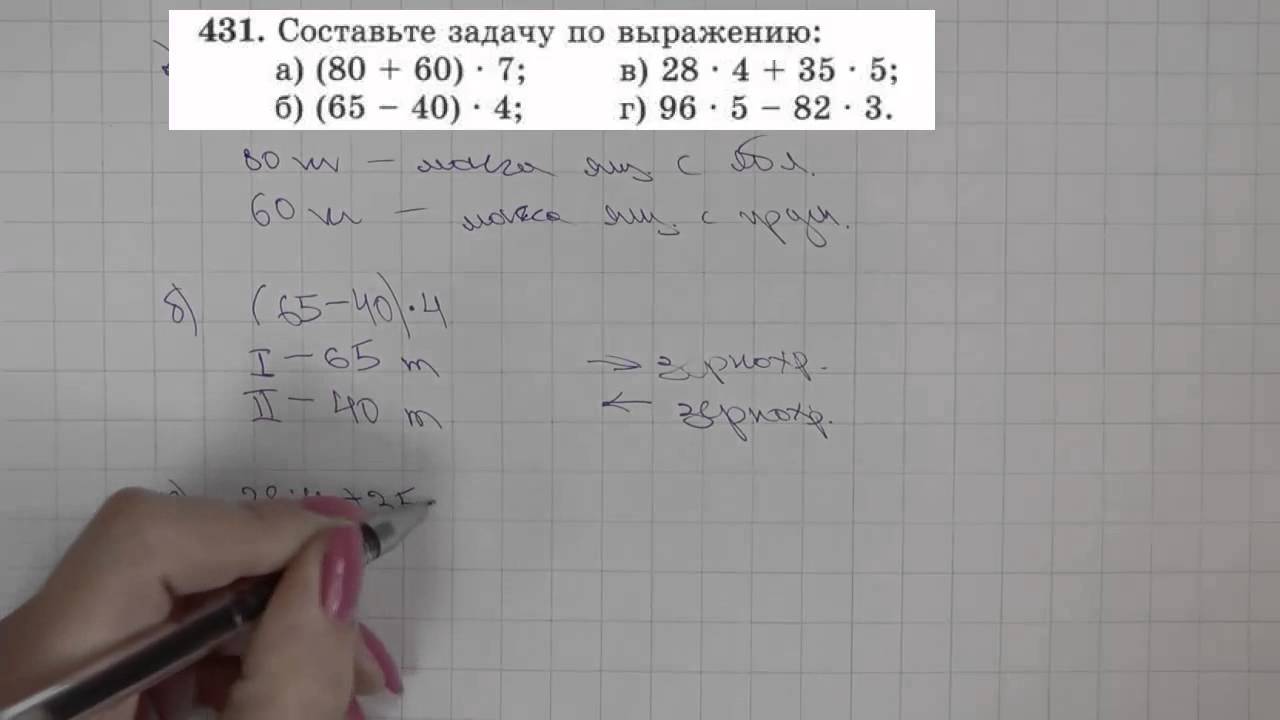 431. Составьте задачу по выражению:
а) (80 + 60) · 7; в) 28 · 4 + 35 · 5;
б) (65 − 40) · 4; г) 96 · 5 − 82 · 3.
80 — масса ящ. с ябл.
60 — масса ящ. с груш.
б) (65−40)·4
I − 65 т → зернохр.
II − 40 т ← зернохр.